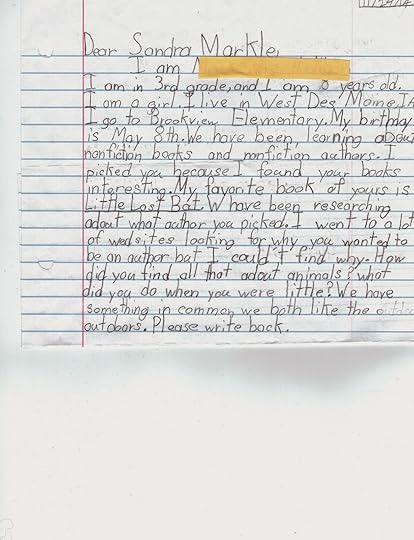 11/24/14
Dear Sandra Markle,
I am
I am in 3rd grade, and I am 8 years old.
I am a girl. I live in West Des Moine, IA
I go to Brookview Elementary. My birthay
is May 8th. We have been learning about
nonfiction books and nonfiction authors. I
picked you because I found your books
interesting. My favorite book of yours is
Little Lost Bat. W have been researching
adout what author you picked. I went to a lot
of wedsites looking for why you wanted to
be an author but I could't find why. How
did you find all that adout animals? what
did you do when you were little? We have
something in common we both like the outdoo
outdoors. Please write back.